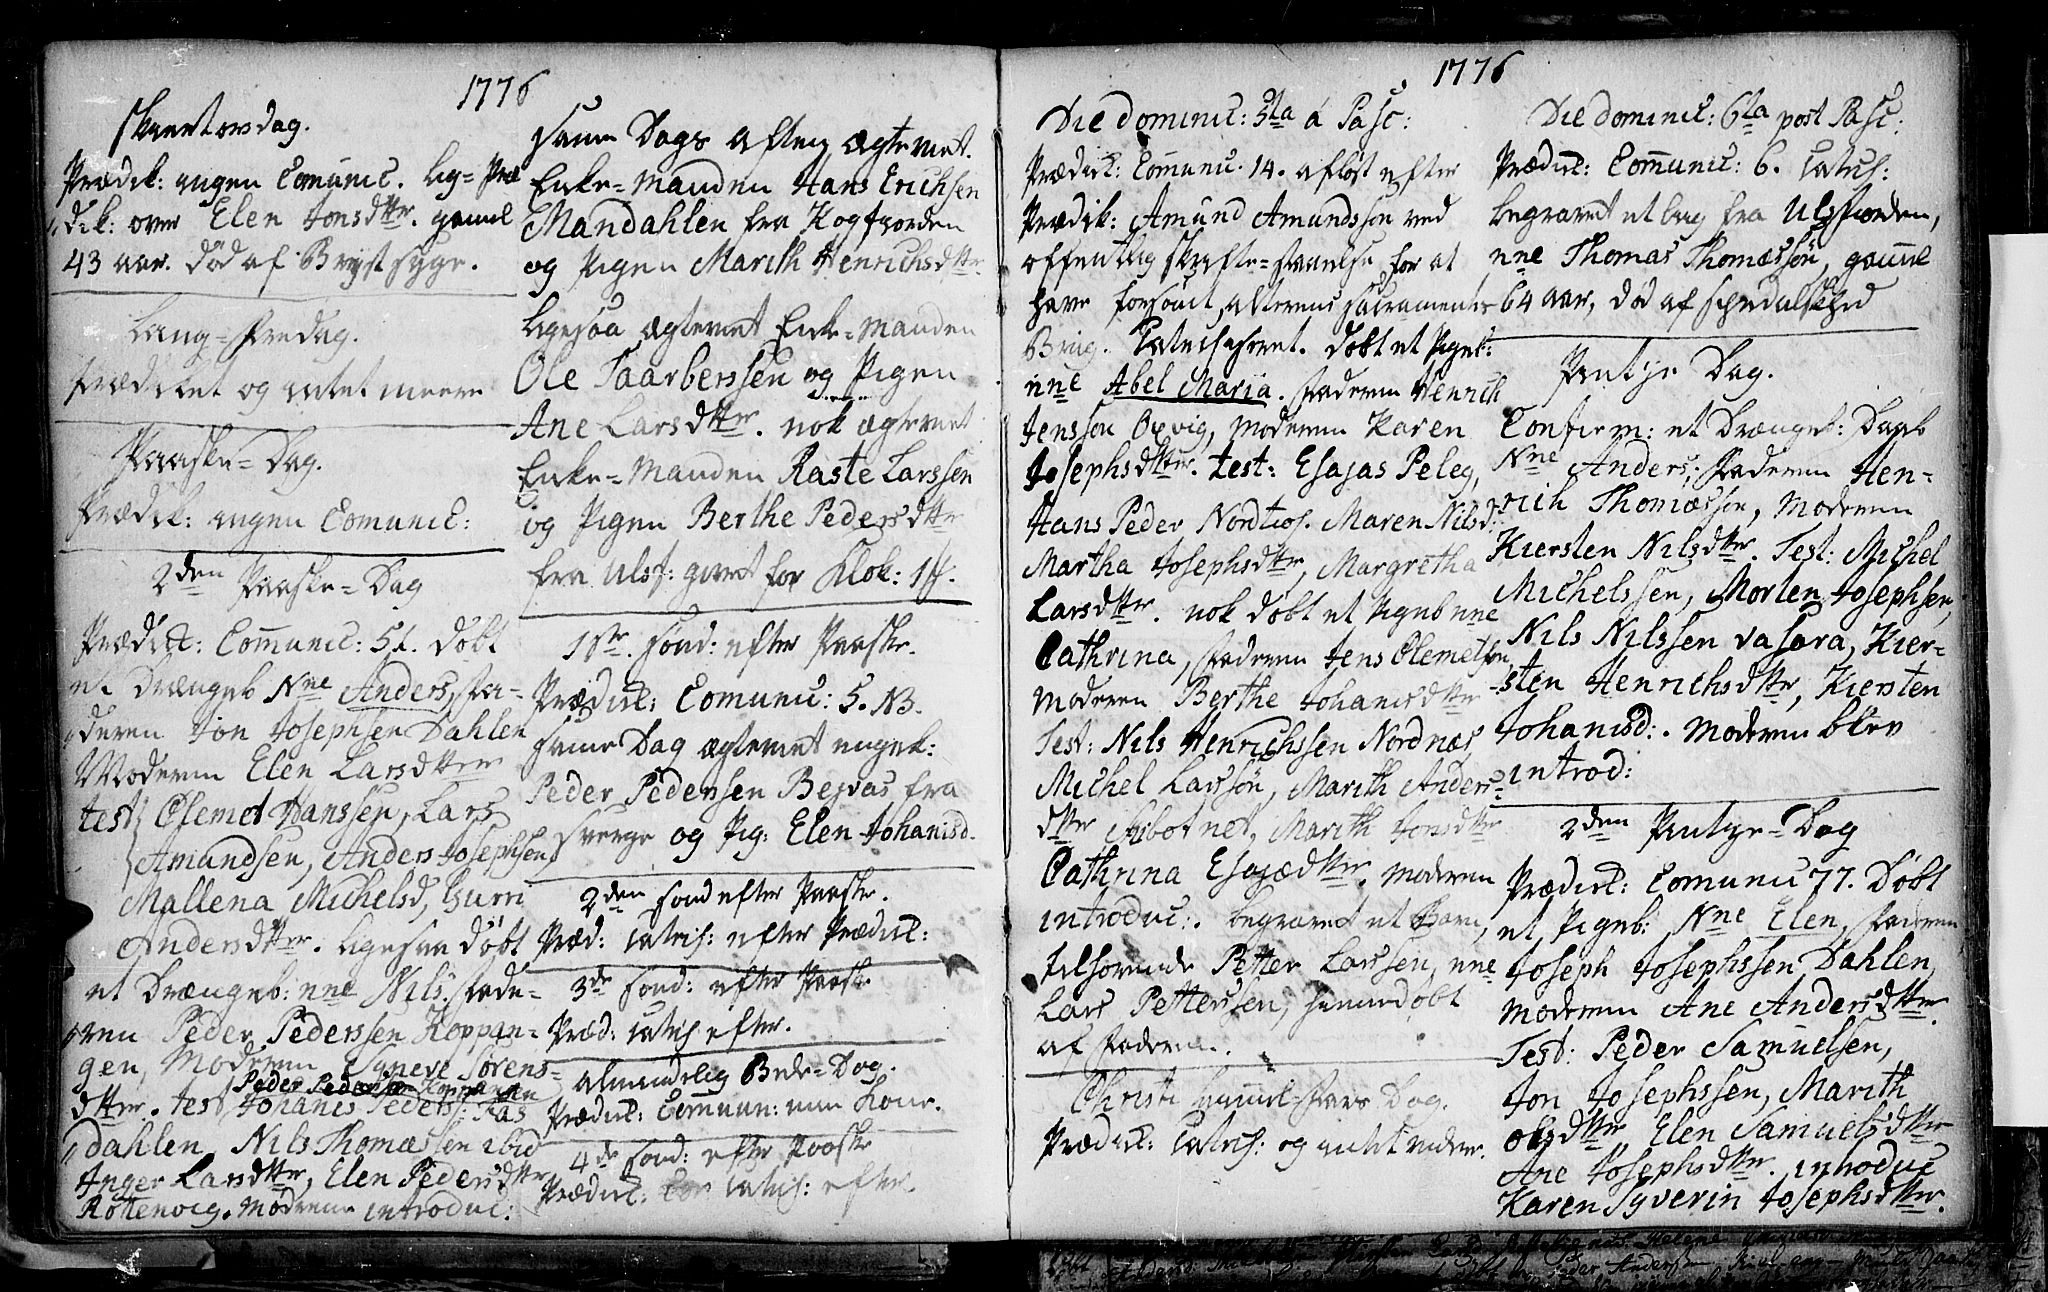 1776
Skiertorsdag.
Prædik: ingen Comunic. lig-Præ
dik: over Elen Jonsdttr. gaml
43 aar. død af Brystsyge.
Lang-Fredag.
Prædiket og intet meere
Paaske-Dag.
Prædik: ingen Comunic:
2den Paaske-Dag
Prædict: Comunic: 51. døbt
et Drængeb Nne Anders, Fa-
deren Jon Josephsen Dahlen
Moderen Elen Larsdttr
test: Olemet Hanssen, Lars
Amundsen, Anders Josephsen,
Mallena Michelsd, Gurri
Andersdttr. ligesaa døbt
et Drængeb: nne Nils. Fade-
ren Peder Pederssen Koppan-
gen, Moderen Syneve Sørens-
dttr. test Peder Pedersen Koppangen
Johanes Peders: Kas
dahlen, Nils Thomæssen ibid
Inger Larsdttr, Elen Pedersdttr
Rottenvig. Moderen introduc:
samme Dags aften ægteviet.
Enke-Manden Hans Erichsen
Mandahlen fra Kogfiorden
og Pigen Marith Henrichsdttr.
ligesaa ægteviet Enke-Manden
Ole Taarberssen og Pigen
Ane Larsdttr. nok ægteviet
Enke-Manden Raste Larssen
og Pigen Berthe Pedersdttr
fra Ulsf: gavet for Klok: 1 f.
1ste. Sønd: efter Paaske.
Prædict: Comunic: 5. NB.
samme Dag ægteviet ungek:
Peder Pedersen Bejvas fra
Sverge og Pig: Elen Johanisd.
2den Sønd efter Paaske.
Præd: Catech: efter Prædict:
3de Sønd: efter Paaske
Præd: Catech efter.
Almindelig Bede-Dag.
Prædict: Comunic:
4de Sønd: efter Paaske
Prædict: Catech: efter.
1776
Die Dominic: 5ta á Pasc:
Prædict: Comunic. 14. afløst efter
Prædik: Amund Amundssøn ved
offentlig Skrifte-staaelse for at
have forsømt Alterens Sacramentes
Brug. Catechiseret. døbt et Pigeb:
nne Abel Maria. Faderen Henrich
Jenssøn Oxvig, Moderen Karen
Josephsdttr. test: Esajas Peleg,
Hans Peder Nordtios. Maren Nilsd:
Martha Josephsdttr, Margretha
Larsdttr. nok døbt et Pigeb nne
Cathrina, Faderen Jens Olemetsen,
Moderen Berthe Johanisdttr
Test: Nils Henrichssen Nordnæs
Michel Larssøn, Marith Anders-
dttr Aibotnet, Marith Jonsdttr
Cathrina Esajædttr. Moderen
introduc:. begravet et Barn,
tilhørende Petter Larssen, nne
Lars Petterssen, hiemedøbt
af Faderen.
Christi himmel-Fars Dag.
Prædict: Catech: og intet videre.
Die Dominic: 6ta post Pasc:
Prædict: Comunic: 6. Catech:
begravet et lig fra Ulsfiorden,
nne Thomas Thomæssøn, gaml
64 aar, død af Spedalskhed
Pintze Dag.
Confirm: et Drængeb: Daab
Nne Anders, Faderen Hen-
rich Thomæssøn, Moderen
Kiersten Nilsdttr. Test: Michel
Michelssen, Morten Josephsen,
Nils Nilssen Vasara, Kier-
sten Henrichsdttr, Kiersten
Johanisd:. Moderen blev
introd:
2den Pintze-Dag
Prædict: Comunic 77. Døbt
et Pigeb: Nne Elen, Faderen
Joseph Josephssen Dahlen,
Moderen Ane Andersdttr.
Test: Peder Samuelsen,
Jon Josephssen, Marith
Olsdttr, Elen Samuelsdttr
Ane Josephsdttr. introduc
Karen Syverin Josephsdttr.